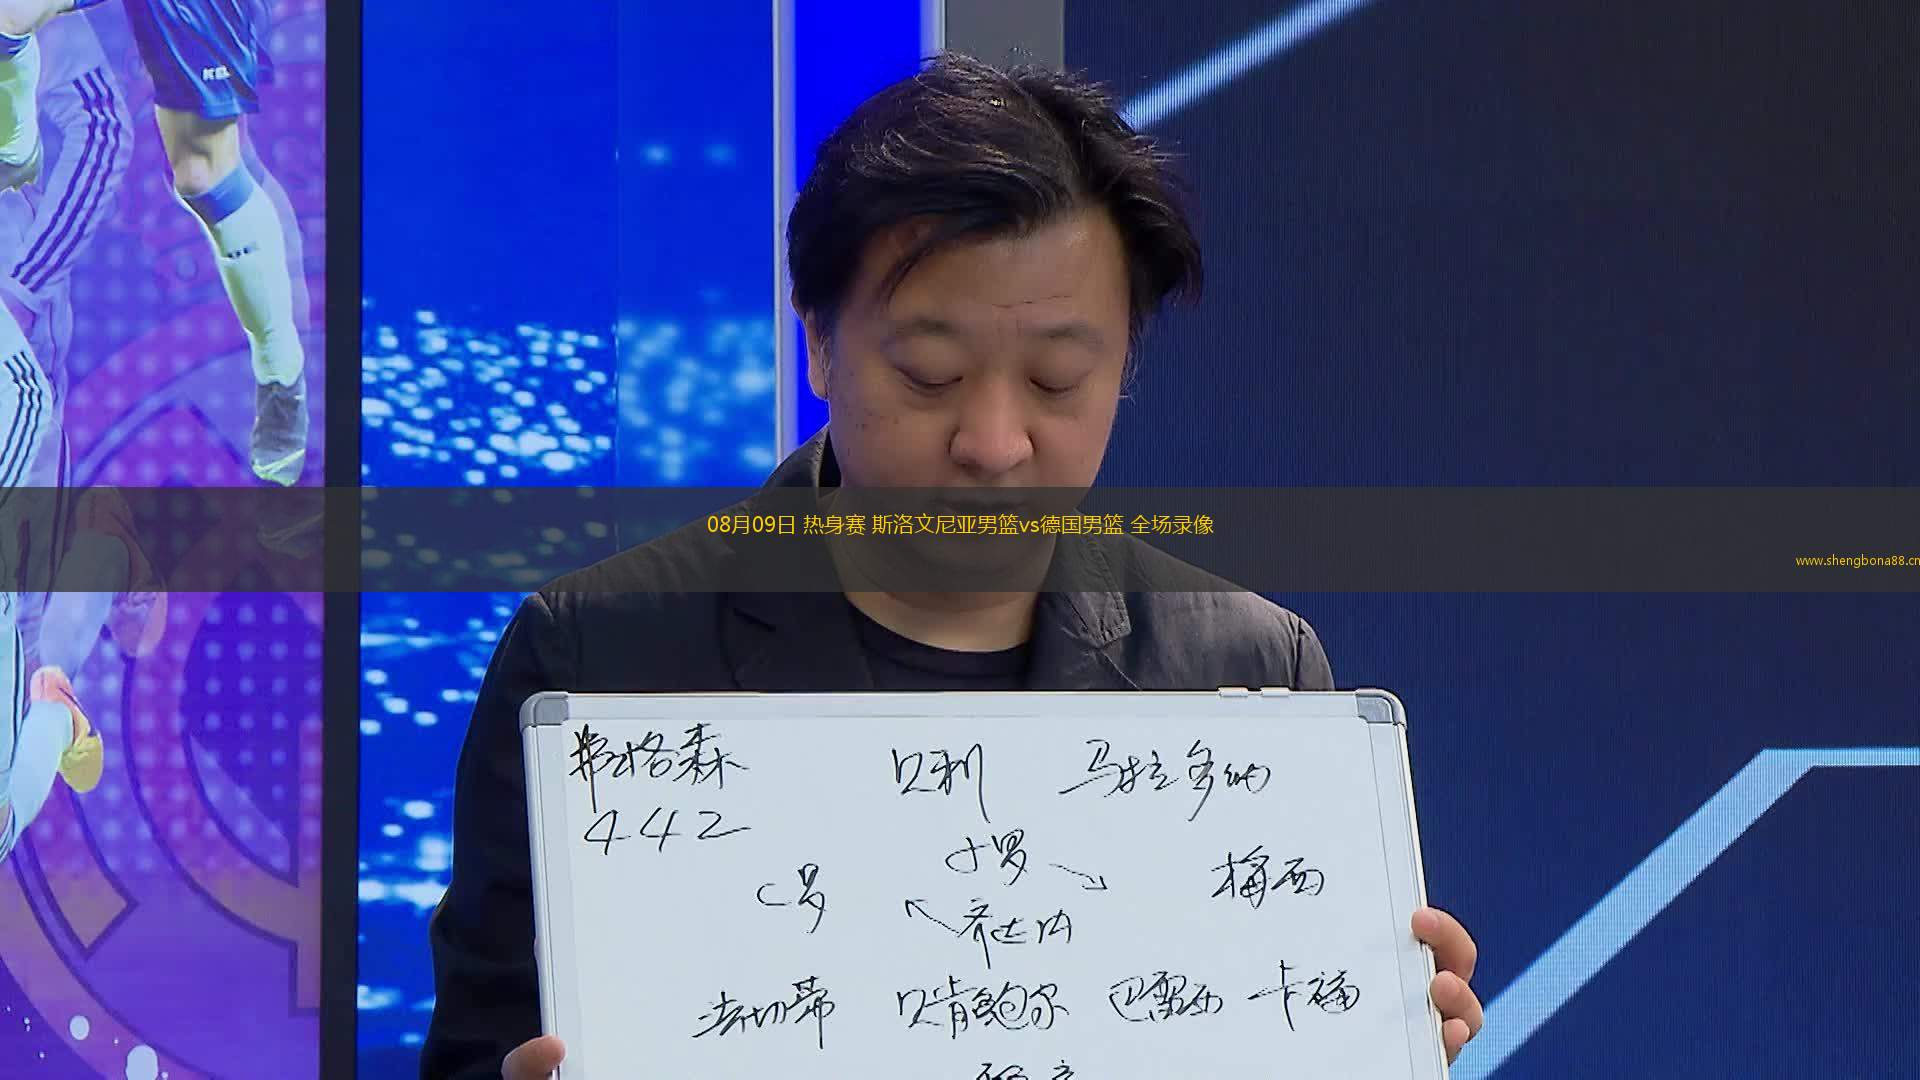 KEL
08月09日 热身赛 斯洛文尼亚男篮vs德国男篮 全场录像
www.shengbona88.cn
弗格森 贝利 马拉多纳
442
小罗
C罗 梅西
齐达内
法切蒂 贝肯鲍尔 巴雷西 卡福